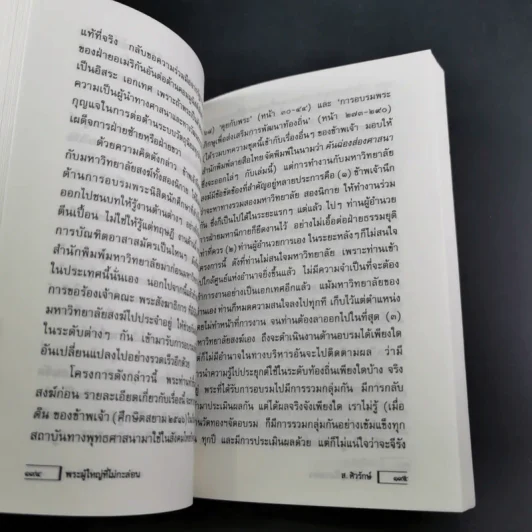 แท้ที่จริง กลับขอความร่วมมือ
ของฝ่ายอเมริกันอันต่อต้านคอมมูนิสต์
เป็นอิสระ เอกเทศ เพราะถ้าพระ
ความเป็นผู้นำทางศาสนาและทาง
กุญแจในการต่อต้านระบบวัตถุนิยม
เผด็จการฝ่ายซ้ายหรือฝ่ายขวา
ด้วยความคิดดังกล่าว
กับมหาวิทยาลัยสงฆ์ทั้งสองนิกาย
ด้านการอบรมพระนิสิตนักศึกษา
ออกไปชนบทให้รู้งานด้านต่างๆ
ตีนเปื้อน ไม่ใช่ให้รู้แต่ทฤษฎี
การบัณฑิตอาสาสมัครเป็นไหนๆ
สำนักพิมพ์มหาวิทยาลัยมาก่อนมหาวิทยาลัย
ในประเทศนี้นั่นเอง นอกไปจากนี้
การขอร้องเจ้าคณะ พระสังฆาธิการ
มหาวิทยาลัยสงฆ์ไปประจำอยู่
ในระดับต่างๆ กัน เข้ามารับการอบรม
อันเปลี่ยนแปลงไปอย่างรวดเร็วอีกด้วย
โครงการดังกล่าวนี้ พระท่าน
สงฆ์ก่อน รายละเอียดเกี่ยวกับเรื่องนี้
ตีน ของข้าพเจ้า (ศึกษิตสยาม ๒๕๑๖)
สถาบันทางพุทธศาสนามาใช้ในสังคม
๑๓๔ พระผู้ใหญ่ที่ไม่กะล่อน
'พูดกับพระ' (หน้า ๓๐-๔๔) และ 'การอบรมพระ
เพื่อส่งเสริมการพัฒนาท้องถิ่น' (หน้า ๒๗๓-๒๙๐)
(ได้รวมบทความชุดนี้เข้ากับเรื่องอื่นๆ ของข้าพเจ้า มอบให้
สำนักพิมพ์ลายสือไทยจัดพิมพ์ในนามว่า คันฉ่องส่องศาสนา
ซึ่งจะออกไล่ๆ กับเล่มนี้) แต่การทำงานกับมหาวิทยาลัย
มีข้อขัดข้องที่สำคัญอยู่หลายประการคือ (๑) ข้าพเจ้านึก
จะหาทางรวมสองมหาวิทยาลัย สองนิกาย ให้ทำงานร่วม
กัน ซึ่งก็เป็นไปได้ในระยะแรกๆ แต่แล้ว ไปๆ ท่านผู้อำนวย
การฝ่ายมหานิกายก็ยึดงานไว้ อย่างไม่เอื้อต่อฝ่ายธรรมยุติ
เท่าที่ควร (๒) ท่านผู้อำนวยการเอง ในระยะหลังๆ ก็ไม่สนใจ
โครงการนี้ ดังที่ท่านไม่สนใจมหาวิทยาลัย เพราะท่านเข้า
ไปใกล้ศูนย์แห่งอำนาจยิ่งขึ้นแล้ว ไม่มีความจำเป็นที่จะต้อง
ทำการงานอย่างเป็นเอกเทศอีกแล้ว แม้มหาวิทยาลัยของ
ท่าน ท่านก็หมดความสนใจลงไปทุกที เก็บไว้แต่ตำแหน่ง
โดยไม่ทำหน้าที่การงาน จนท่านต้องลาออกไปในที่สุด (๓)
มหาวิทยาลัยสงฆ์เอง ถึงจะดำเนินงานด้านอบรมได้เพียงใด
ก็ไม่มีอำนาจในทางบริหารอันจะไปติดตามผล ว่ามี
การนำความรู้ไปประยุกต์ใช้ในระดับท้องถิ่นเพียงใดบ้าง จริง
อยู่ พระที่ได้รับการอบรมไปมีการรวมกลุ่มกัน มีการกลับ
มาประเมินผลกัน แต่ได้ผลจริงจังเพียงใด เราไม่รู้ (เมื่อ
งานวัดทองฯจัดอบรม ก็มีการรวมกลุ่มกันอย่างเข้มแข็งทุก
ทุกปี และมีการประเมินผลด้วย แต่ก็ไม่แน่ใจว่าจะจีรัง
ส. ศิวรักษ์ ๑๓๕